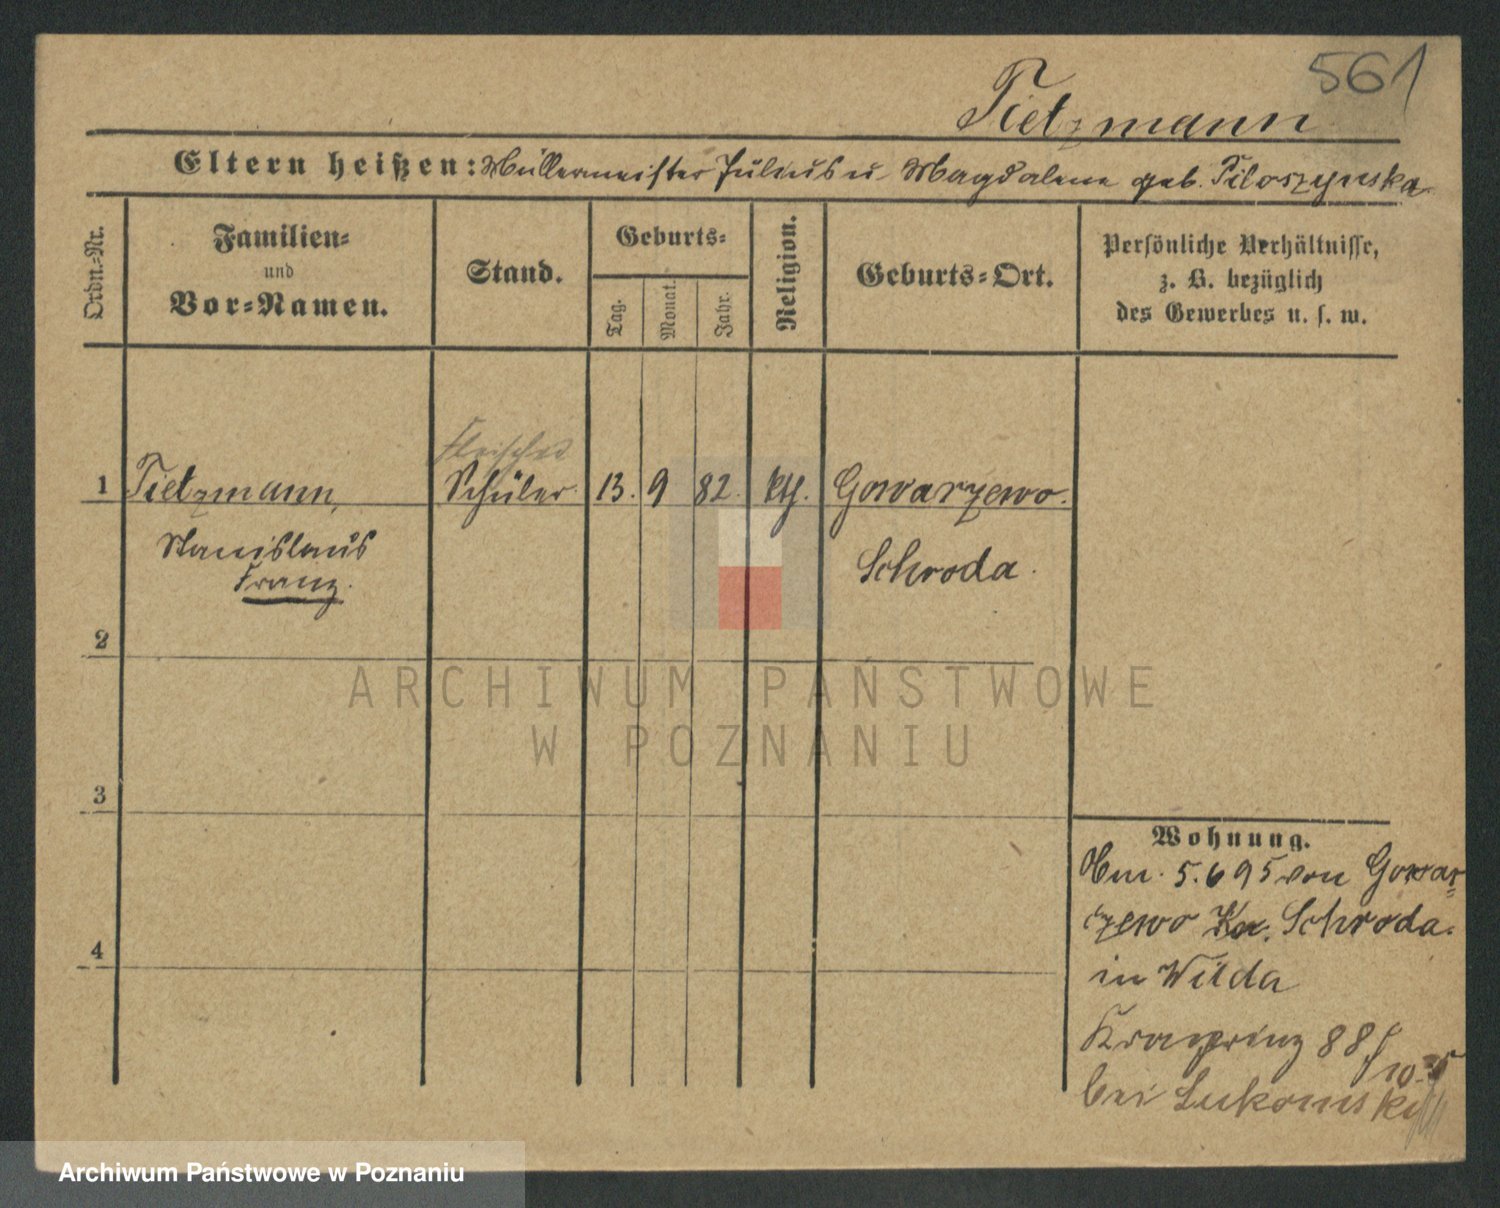 561
Tietzmann
Eltern heißen: Müllermeister Julius u. Magdalene geb. Filoszynska
Ordn.-Nr.
Familien-
und
Vor-Namen.
Stand.
Geburts-
Tag.
Monat.
Jahr.
Religion.
Geburts-Ort.
Persönliche Verhältnisse,
z. B. bezüglich
des Gewerbes u. s. w.
Fleischer
1 Tietzmann, Schüler 13. 9 82. kth. Gowarzewo.
Stanislaus
Franz.
Schroda.
2
3
4
ARCHIWUM PAŃSTWOWE
W POZNANIU
Wohnung.
5.6 95 von Gowar-
zewo Kr. Schroda.
in Wilda
Kronprinz 88
bei Lukomski
Archiwum Państwowe w Poznaniu